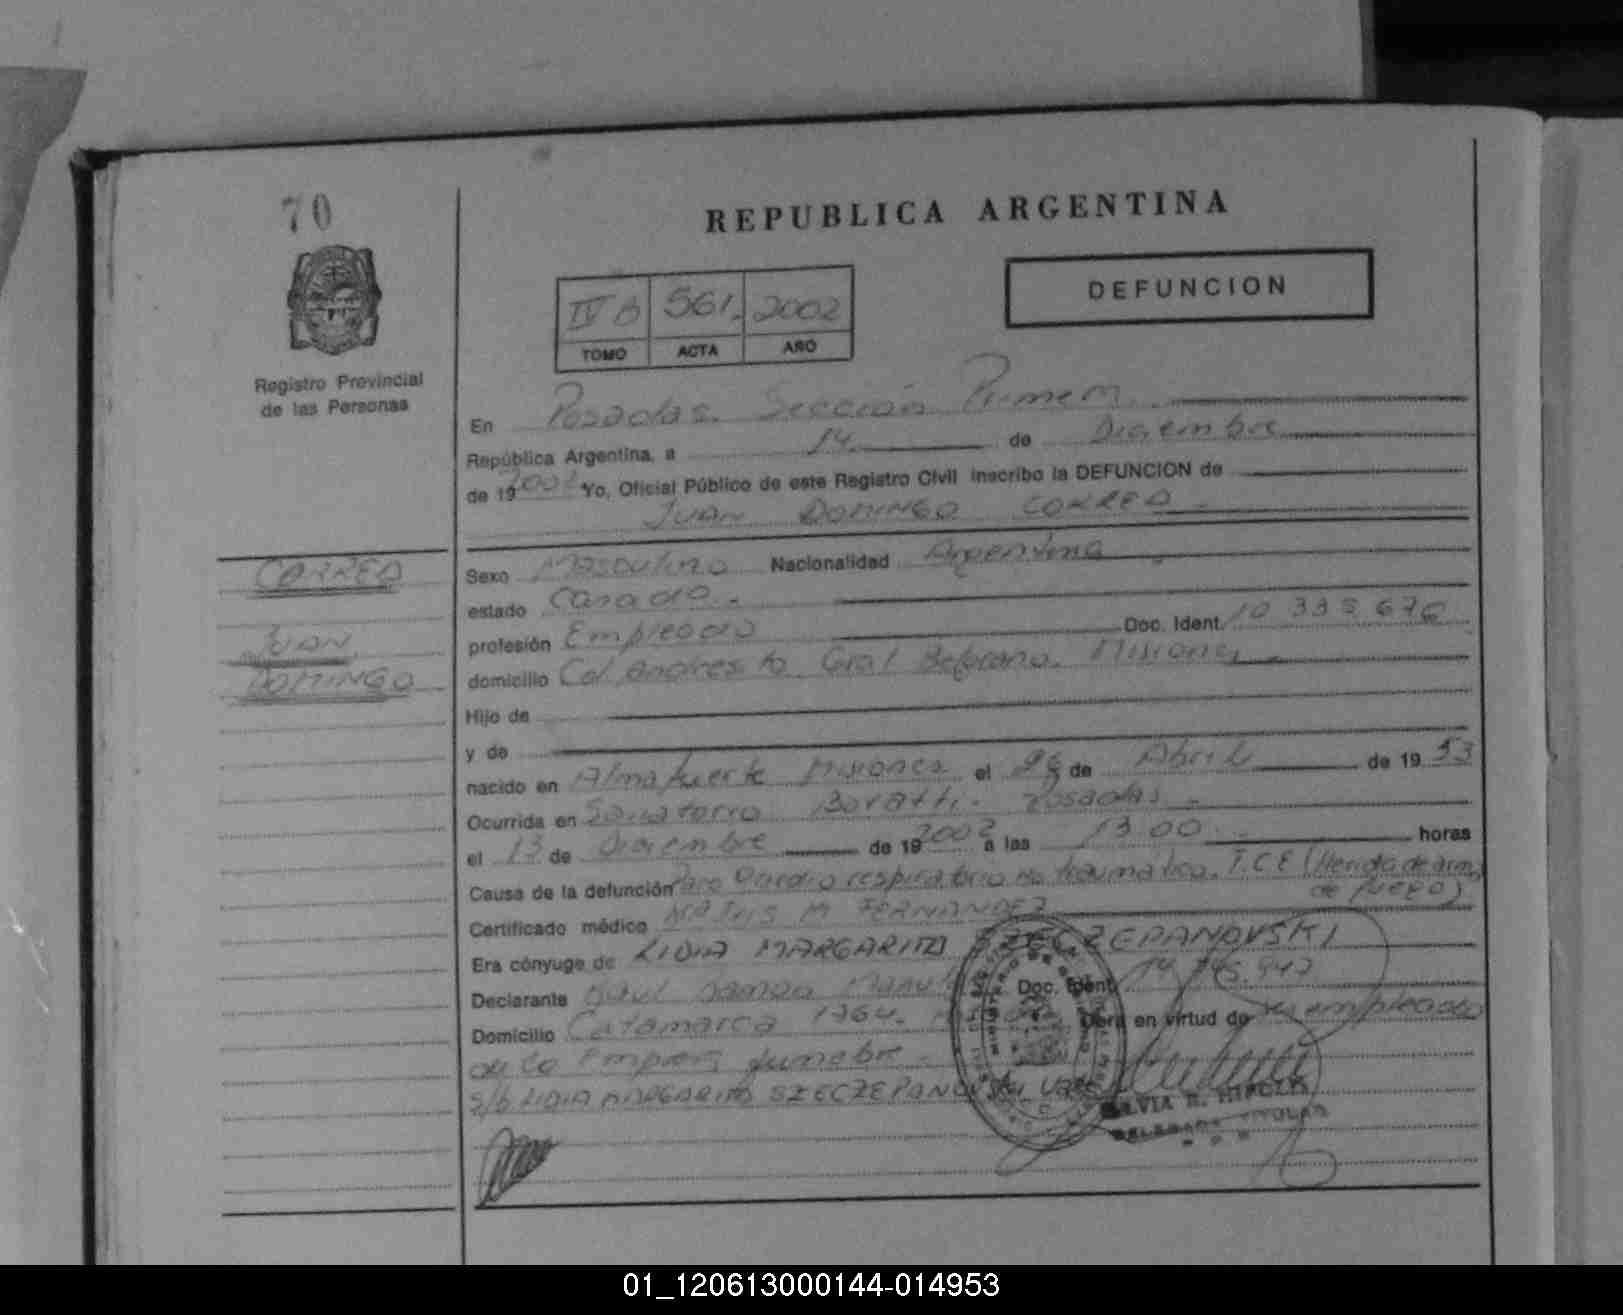 70
REPUBLICA ARGENTINA
DEFUNCION
IV B 561. 2002
TOMO ACTA AÑO
Registro Provincial
de las Personas
En Posadas. Sección Primera.
República Argentina, a 14 de Diciembre
de 19 2002 Yo, Oficial Público de este Registro Civil inscribo la DEFUNCION de
JUAN DOMINGO CORREA
CORREA
JUAN
DOMINGO
Sexo Masculino Nacionalidad Argentina
estado Casado.
profesión Empleado Doc. Ident. 10 335 676
domicilio Col. Andresito Gral Belgrano. Misiones
Hijo de
y de
nacido en Almafuerte Misiones el 26 de Abril de 19 53
Ocurrida en Sanatorio Boratti. Posadas
el 13 de Diciembre de 19 2002 a las 13.00 horas
Causa de la defunción Paro Cardio respiratorio no traumatico. T.C.E (Herida de arma
de FUEGO)
Certificado médico M FERNANDEZ
Era cónyuge de LIDIA MARGARITA SZECZEPANOVSKI
Declarante Raul Ramon Doc. Ident. 14
Domicilio Catamarca 1764. Obra en virtud de ser empleado
de la Empresa funebre.
S/D LIDIA MARGARITA SZECZEPANOVSKI VALE
MINISTERIO DE GOBIERNO
SILVIA R.
DELEGADA TITULAR
01_120613000144-014953